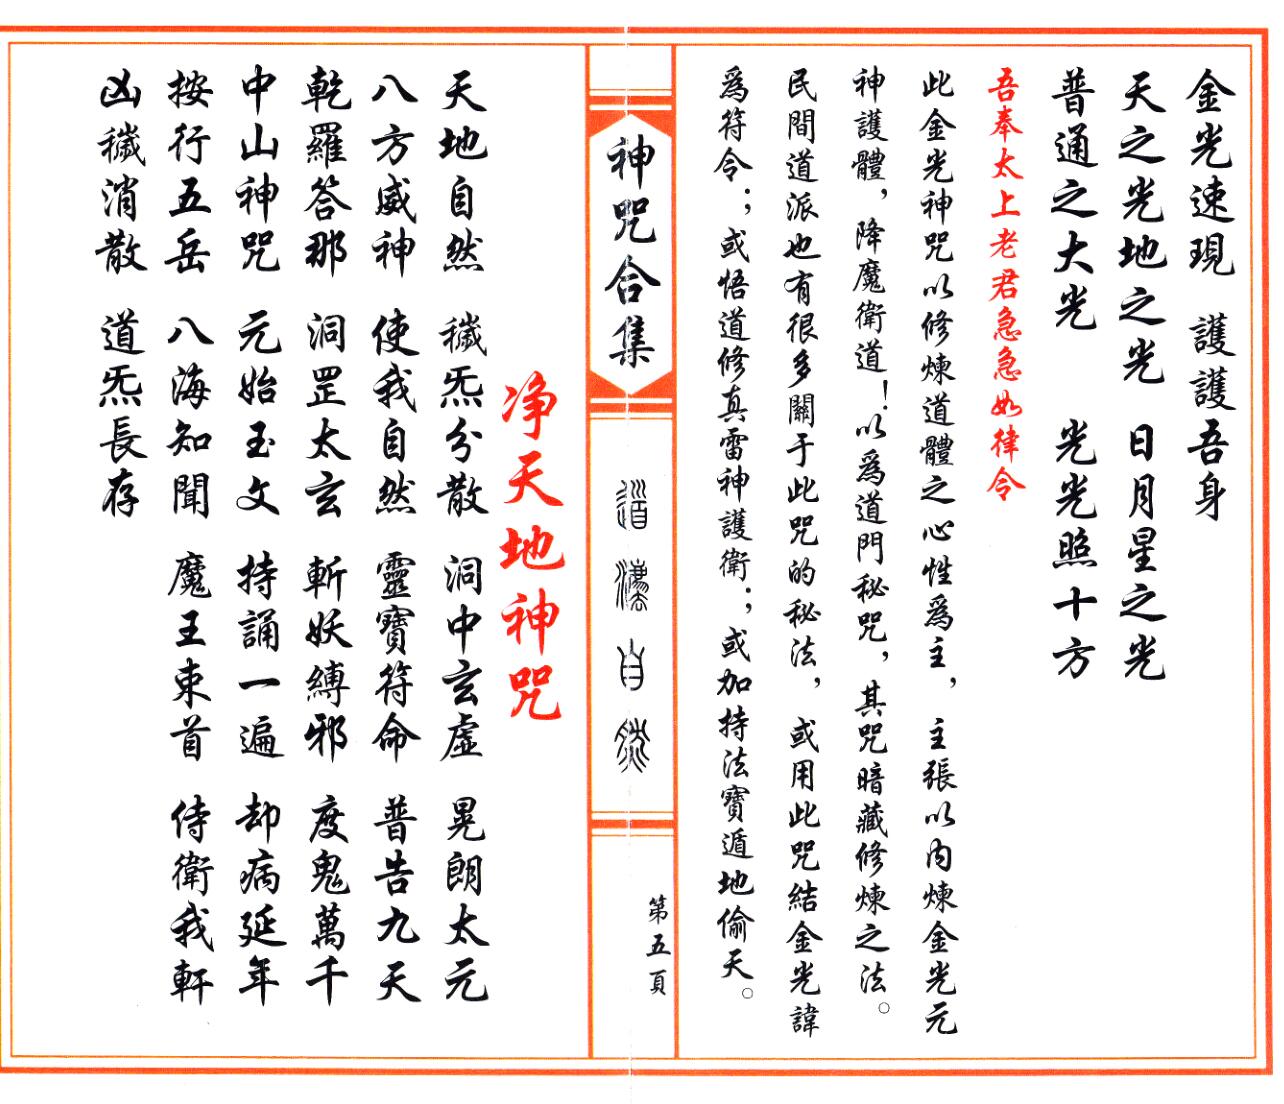 金光速現　護護吾身
天之光地之光　日月星之光
普通之大光　光光照十方
吾奉太上老君急急如律令
此金光神咒以修煉道體之心性爲主，主張以内煉金光元
神護體，降魔衛道！以爲道門秘咒，其咒暗藏修煉之法。
民間道派也有很多關于此咒的秘法，或用此咒結金光諱
爲符令；或悟道修真雷神護衛；或加持法寶遁地偷天。
神咒合集
道灋自然
第五頁
净天地神咒
天地自然　穢炁分散　洞中玄虛　晃朗太元
八方威神　使我自然　靈寶符命　普告九天
乾羅答那　洞罡太玄　斬妖縛邪　度鬼萬千
中山神咒　元始玉文　持誦一遍　却病延年
按行五岳　八海知聞　魔王束首　侍衛我軒
凶穢消散　道炁長存